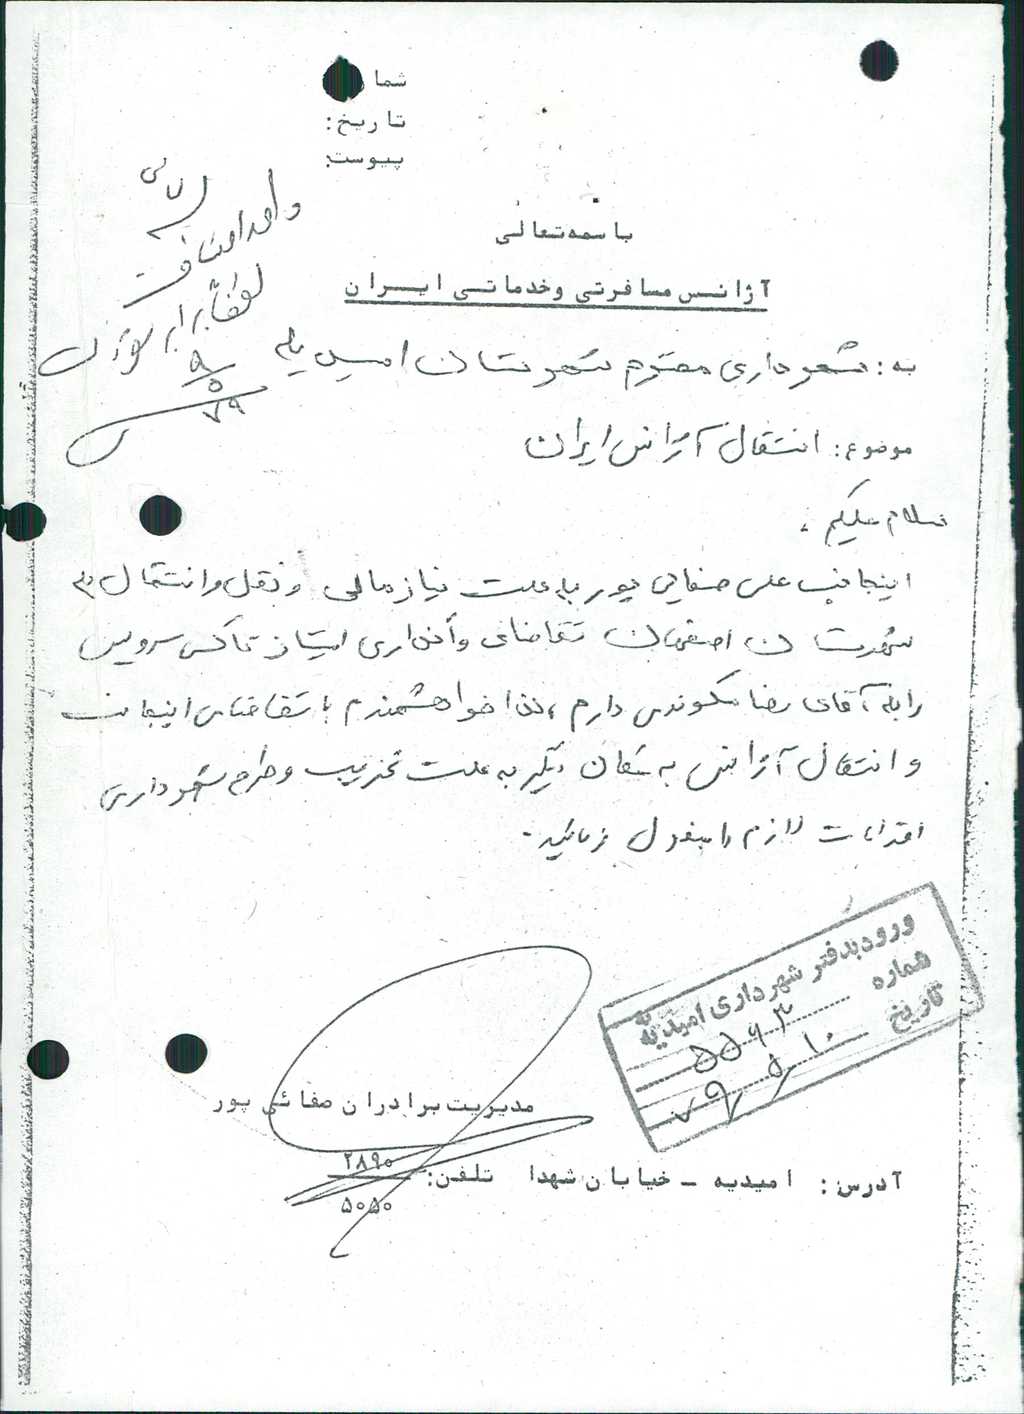 شما
تاریخ:
پیوست:
باسمه‌تعالی
آژانس مسافرتی و خدماتی ایران
به: شهرداری محترم شهرستان امیدیه
موضوع: انتقال آژانس ایران
سلام علیکم،
اینجانب علی صفایی پور به علت نیاز مالی و نقل و انتقال به
شهرستان اصفهان تقاضای واگذاری امتیاز تاکسی سرویس
را به آقای رضا دارم، لذا خواهشمندم با تقاضای اینجانب
و انتقال آژانس به مکان دیگر به علت تخریب و طرح شهرداری
اقدامات لازم را مبذول فرمائید.
واحد اصناف
لطفاً برابر
۹
۵
۷۹
ورود بدفتر شهرداری امیدیه
شماره ۵۵۹۳
تاریخ ۷۹/۵/۱۰
مدیریت برادران صفائی پور
آدرس: امیدیه – خیابان شهدا تلفن: ۲۸۹۰
۵۰۵۰